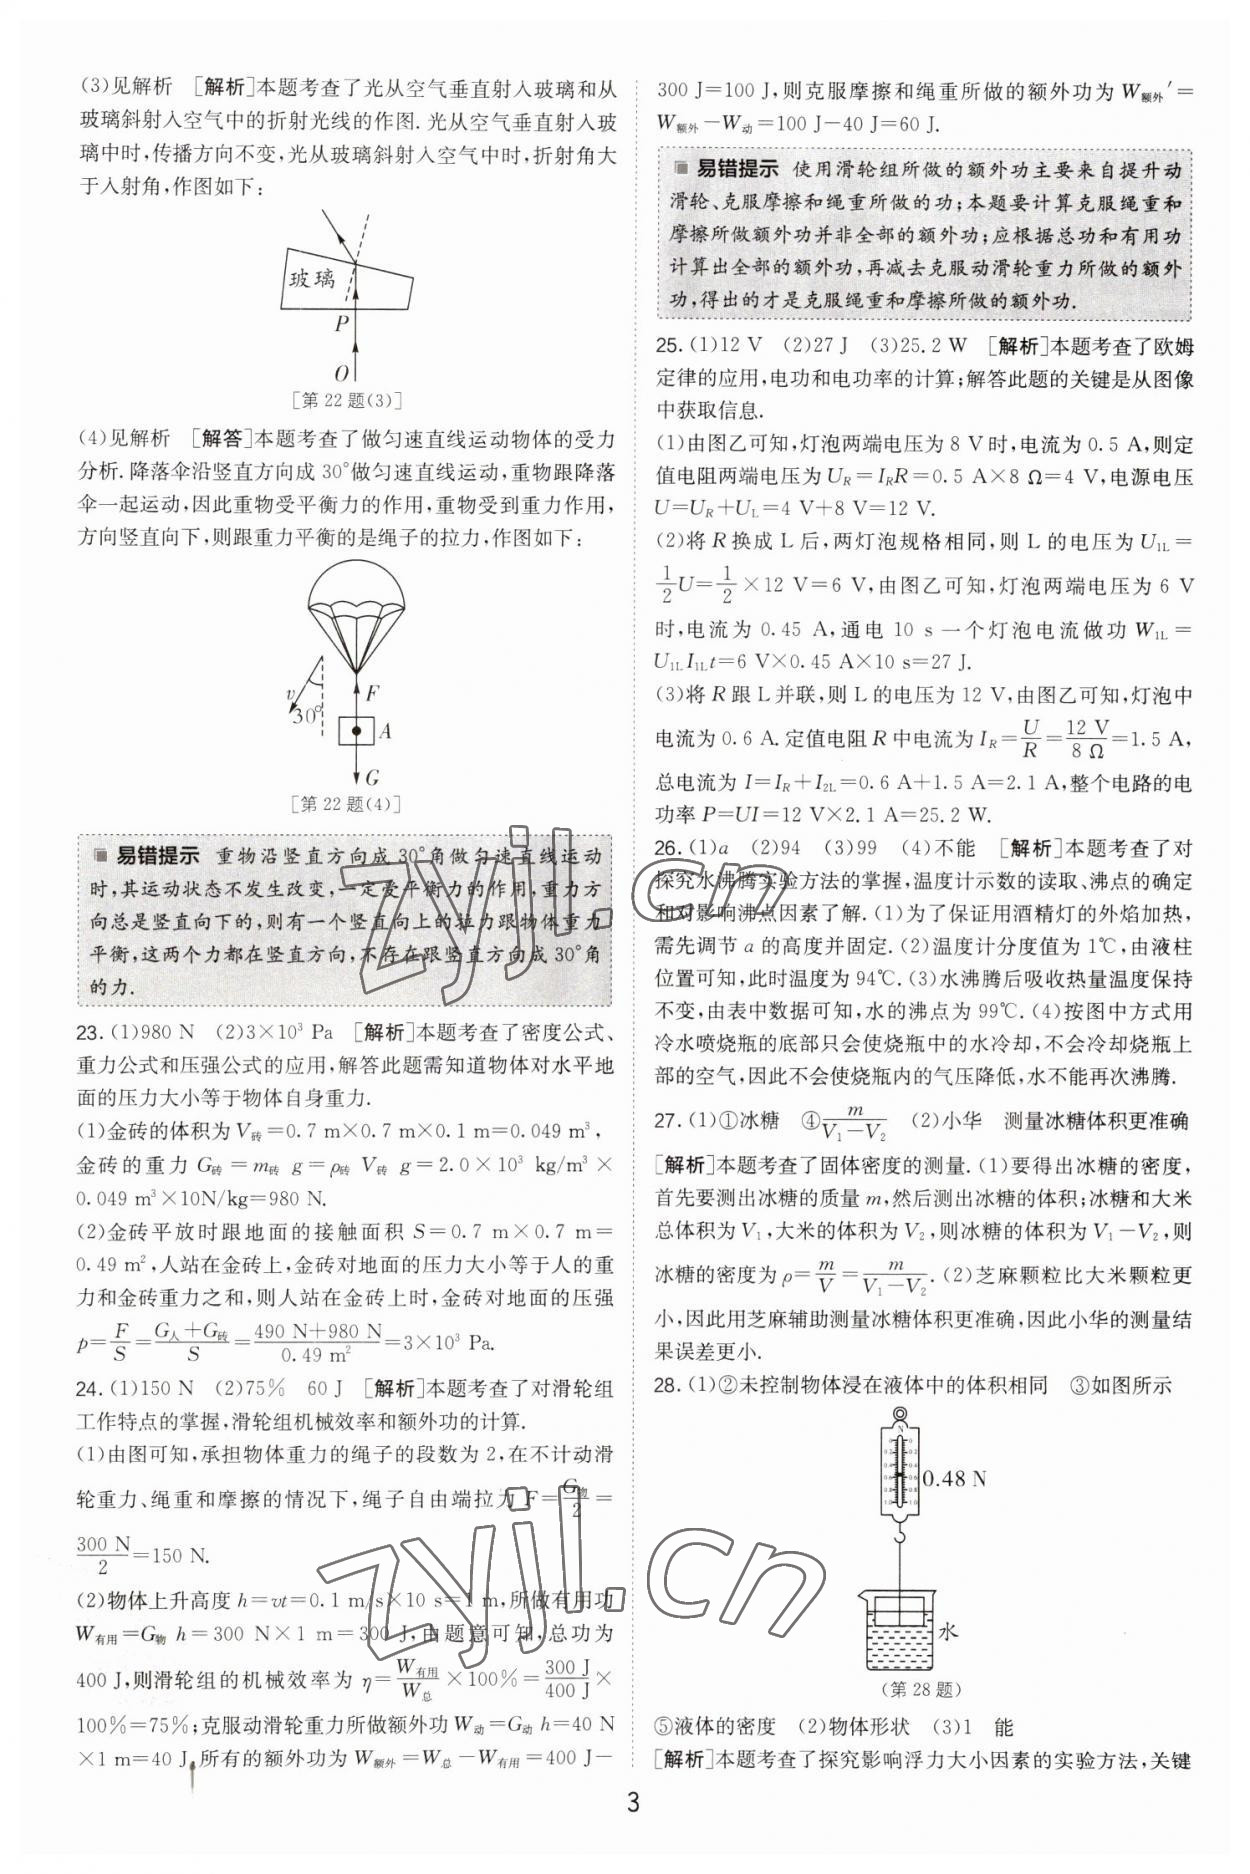 (3)见解析　[解析]本题考查了光从空气垂直射入玻璃和从
玻璃斜射入空气中的折射光线的作图.光从空气垂直射入玻
璃中时,传播方向不变,光从玻璃斜射入空气中时,折射角大
于入射角,作图如下:
玻璃
P
O
[第22题(3)]
(4)见解析　[解答]本题考查了做匀速直线运动物体的受力
分析.降落伞沿竖直方向成30°做匀速直线运动,重物跟降落
伞一起运动,因此重物受平衡力的作用,重物受到重力作用,
方向竖直向下,则跟重力平衡的是绳子的拉力,作图如下:
v
30°
F
A
G
[第22题(4)]
易错提示　重物沿竖直方向成30°角做匀速直线运动
时,其运动状态不发生改变,一定受平衡力的作用,重力方
向总是竖直向下的,则有一个竖直向上的拉力跟物体重力
平衡,这两个力都在竖直方向,不存在跟竖直方向成30°角
的力.
23.(1)980 N　(2)3×10³ Pa　[解析]本题考查了密度公式、
重力公式和压强公式的应用,解答此题需知道物体对水平地
面的压力大小等于物体自身重力.
(1)金砖的体积为V砖=0.7 m×0.7 m×0.1 m=0.049 m³,
金砖的重力G砖=m砖 g=ρ砖 V砖 g=2.0×10³ kg/m³×
0.049 m³×10N/kg=980 N.
(2)金砖平放时跟地面的接触面积S=0.7 m×0.7 m=
0.49 m²,人站在金砖上,金砖对地面的压力大小等于人的重
力和金砖重力之和,则人站在金砖上时,金砖对地面的压强
p=F/S=(G人+G砖)/S=(490 N+980 N)/0.49 m²=3×10³ Pa.
24.(1)150 N　(2)75%　60 J　[解析]本题考查了对滑轮组
工作特点的掌握,滑轮组机械效率和额外功的计算.
(1)由图可知,承担物体重力的绳子的段数为2,在不计动滑
轮重力、绳重和摩擦的情况下,绳子自由端拉力F=G物/2=
300 N/2=150 N.
(2)物体上升高度h=vt=0.1 m/s×10 s=1 m,所做有用功
W有用=G物 h=300 N×1 m=300 J,由题意可知,总功为
400 J,则滑轮组的机械效率为η=W有用/W总×100%=300 J/400 J×
100%=75%;克服动滑轮重力所做额外功W动=G动 h=40 N
×1 m=40 J,所有的额外功为W额外=W总-W有用=400 J-
300 J=100 J,则克服摩擦和绳重所做的额外功为W额外′=
W额外-W动=100 J-40 J=60 J.
易错提示　使用滑轮组所做的额外功主要来自提升动
滑轮、克服摩擦和绳重所做的功;本题要计算克服绳重和
摩擦所做额外功并非全部的额外功;应根据总功和有用功
计算出全部的额外功,再减去克服动滑轮重力所做的额外
功,得出的才是克服绳重和摩擦所做的额外功.
25.(1)12 V　(2)27 J　(3)25.2 W　[解析]本题考查了欧姆
定律的应用,电功和电功率的计算;解答此题的关键是从图像
中获取信息.
(1)由图乙可知,灯泡两端电压为8 V时,电流为0.5 A,则定
值电阻两端电压为U_R=I_R R=0.5 A×8 Ω=4 V,电源电压
U=U_R+U_L=4 V+8 V=12 V.
(2)将R换成L后,两灯泡规格相同,则L的电压为U_1L=
1/2U=1/2×12 V=6 V,由图乙可知,灯泡两端电压为6 V
时,电流为0.45 A,通电10 s一个灯泡电流做功W_1L=
U_1L I_1L t=6 V×0.45 A×10 s=27 J.
(3)将R跟L并联,则L的电压为12 V,由图乙可知,灯泡中
电流为0.6 A.定值电阻R中电流为I_R=U/R=12 V/8 Ω=1.5 A,
总电流为I=I_R+I_2L=0.6 A+1.5 A=2.1 A,整个电路的电
功率P=UI=12 V×2.1 A=25.2 W.
26.(1)a　(2)94　(3)99　(4)不能　[解析]本题考查了对
探究水沸腾实验方法的掌握,温度计示数的读取、沸点的确定
和对影响沸点因素了解.(1)为了保证用酒精灯的外焰加热,
需先调节a的高度并固定.(2)温度计分度值为1℃,由液柱
位置可知,此时温度为94℃.(3)水沸腾后吸收热量温度保持
不变,由表中数据可知,水的沸点为99℃.(4)按图中方式用
冷水喷烧瓶的底部只会使烧瓶中的水冷却,不会冷却烧瓶上
部的空气,因此不会使烧瓶内的气压降低,水不能再次沸腾.
27.(1)①冰糖　④m/(V₁-V₂)　(2)小华　测量冰糖体积更准确
[解析]本题考查了固体密度的测量.(1)要得出冰糖的密度,
首先要测出冰糖的质量m,然后测出冰糖的体积;冰糖和大米
总体积为V₁,大米的体积为V₂,则冰糖的体积为V₁-V₂,则
冰糖的密度为ρ=m/V=m/(V₁-V₂).(2)芝麻颗粒比大米颗粒更
小,因此用芝麻辅助测量冰糖体积更准确,因此小华的测量结
果误差更小.
28.(1)②未控制物体浸在液体中的体积相同　③如图所示
0.48 N
水
(第28题)
⑤液体的密度　(2)物体形状　(3)1　能
[解析]本题考查了探究影响浮力大小因素的实验方法,关键
3
zyjl.cn
zyjl.cn